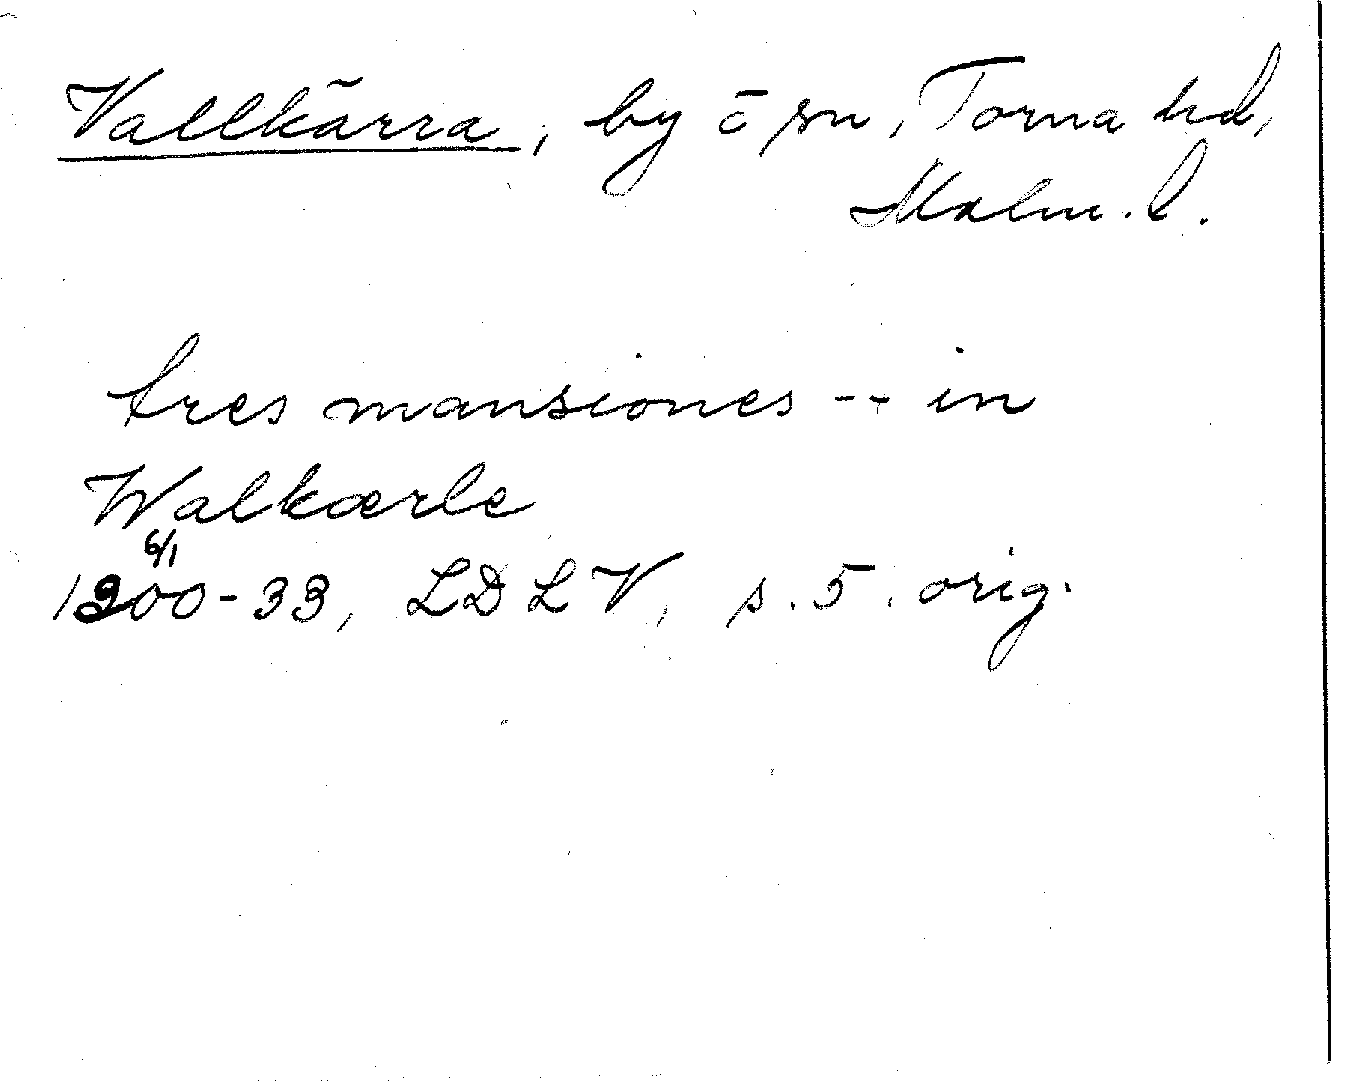 Vallkärra, by o sn, Torna hd,
Malm. l.
tres mansiones -- in
Walkærle
6/1
1200-33, LDLV, s. 5. orig.